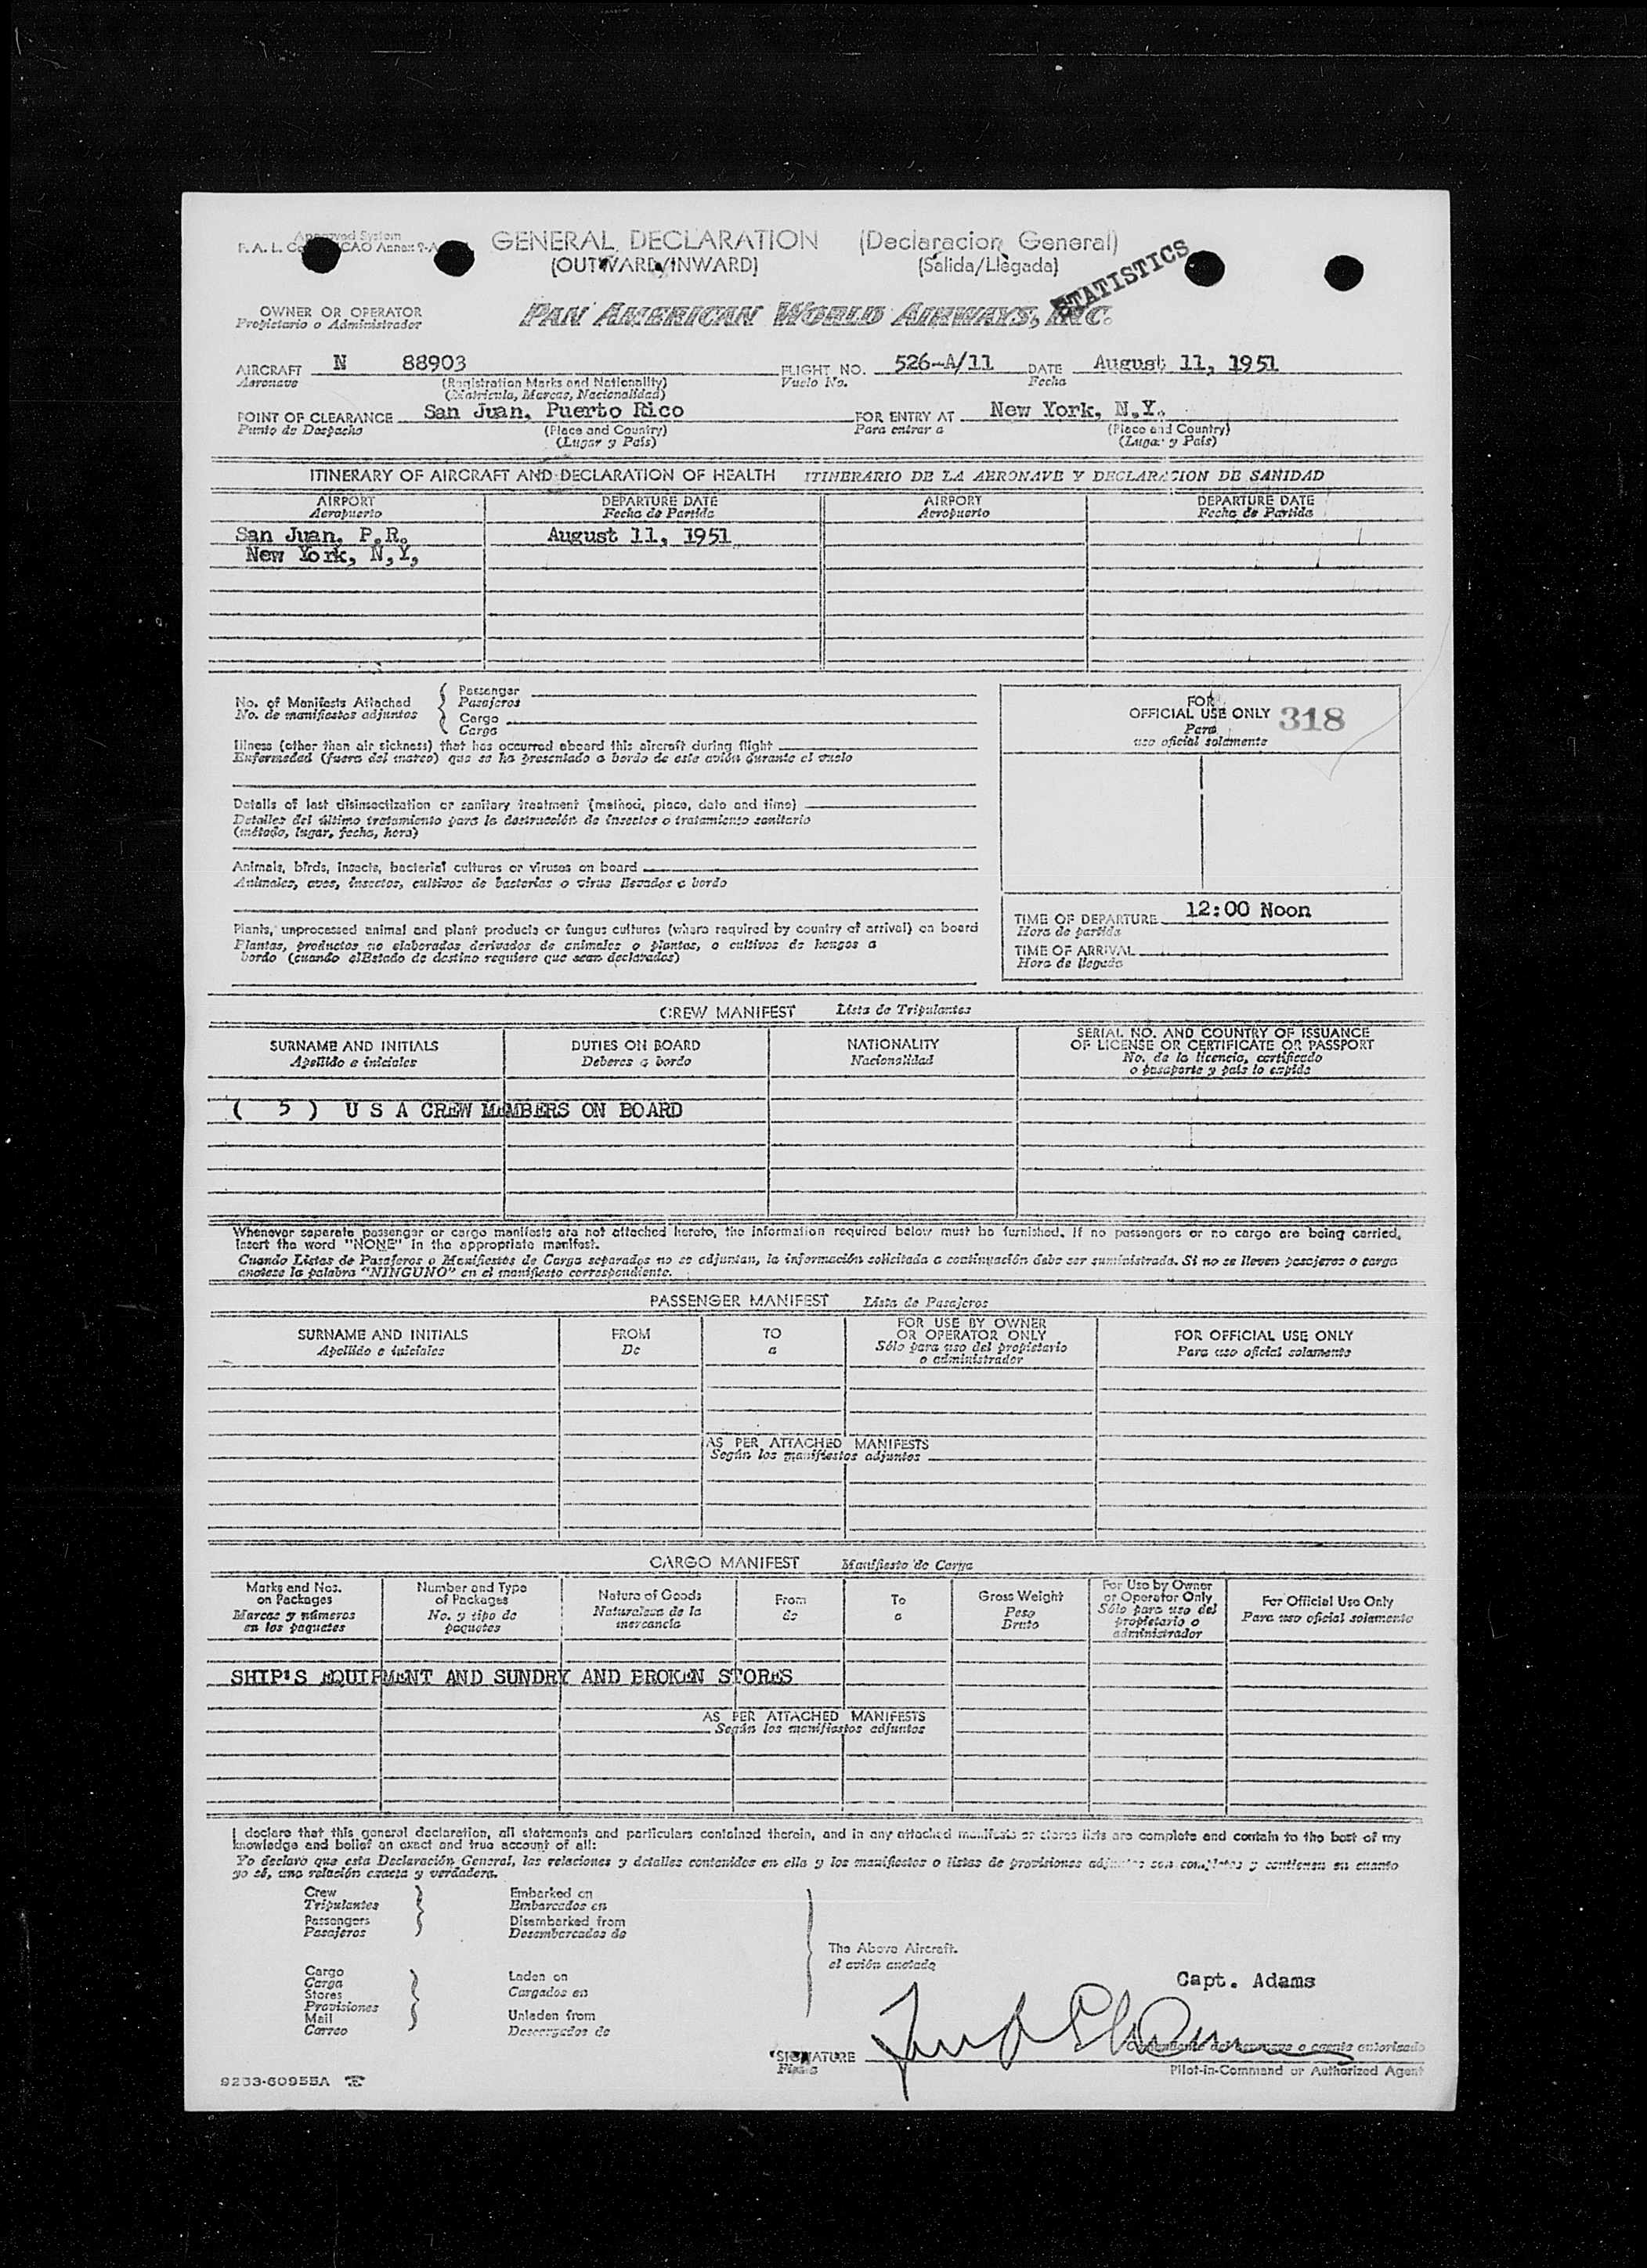 Approved System
F. A. L. CAO Annex 9-A
GENERAL DECLARATION (Declaracion General)
(OUTWARD/INWARD) (Salida/Llegada)
STATISTICS
OWNER OR OPERATOR
Propietario o Administrador
PAN AMERICAN WORLD AIRWAYS, INC.
AIRCRAFT N 88903 FLIGHT NO. 526-A/11 DATE August 11, 1951
Aeronave (Registration Marks and Nationality) Vuelo No. Fecha
(Matrícula, Marcas, Nacionalidad)
POINT OF CLEARANCE San Juan, Puerto Rico FOR ENTRY AT New York, N.Y.
Punto de Despacho (Place and Country) Para entrar a (Place and Country)
(Lugar y País) (Lugar y País)
ITINERARY OF AIRCRAFT AND DECLARATION OF HEALTH ITINERARIO DE LA AERONAVE Y DECLARACION DE SANIDAD
AIRPORT DEPARTURE DATE AIRPORT DEPARTURE DATE
Aeropuerto Fecha de Partida Aeropuerto Fecha de Partida
San Juan, P.R. August 11, 1951
New York, N,Y,
No. of Manifests Attached
No. de manifiestos adjuntos
Passenger
Pasajeros
Cargo
Carga
Illness (other than air sickness) that has occurred aboard this aircraft during flight
Enfermedad (fuera del mareo) que se ha presentado a bordo de este avión durante el vuelo
Details of last disinsectization or sanitary treatment (method, place, date and time)
Detalles del último tratamiento para la destrucción de insectos o tratamiento sanitario
(método, lugar, fecha, hora)
Animals, birds, insects, bacterial cultures or viruses on board
Animales, aves, insectos, cultivos de bacterias o virus llevados a bordo
Plants, unprocessed animal and plant products or fungus cultures (where required by country of arrival) on board
Plantas, productos no elaborados derivados de animales o plantas, o cultivos de hongos a
bordo (cuando elEstado de destino requiere que sean declarados)
FOR
OFFICIAL USE ONLY 318
Para
uso oficial solamente
TIME OF DEPARTURE 12:00 Noon
Hora de partida
TIME OF ARRIVAL
Hora de llegada
CREW MANIFEST Lista de Tripulantes
SURNAME AND INITIALS DUTIES ON BOARD NATIONALITY SERIAL NO. AND COUNTRY OF ISSUANCE
OF LICENSE OR CERTIFICATE OR PASSPORT
Apellido e iniciales Deberes a bordo Nacionalidad No. de la licencia, certificado
o pasaporte y país lo expide
( 5 ) U S A CREW MEMBERS ON BOARD
Whenever separate passenger or cargo manifests are not attached hereto, the information required below must be furnished. If no passengers or no cargo are being carried,
insert the word "NONE" in the appropriate manifest.
Cuando Listas de Pasajeros o Manifiestos de Carga separados no se adjuntan, la información solicitada a continuación debe ser suministrada. Si no se llevan pasajeros o carga
anotese la palabra "NINGUNO" en el manifiesto correspondiente.
PASSENGER MANIFEST Lista de Pasajeros
SURNAME AND INITIALS FROM TO FOR USE BY OWNER
OR OPERATOR ONLY FOR OFFICIAL USE ONLY
Apellido e iniciales De a Sólo para uso del propietario
o administrador Para uso oficial solamente
AS PER ATTACHED MANIFESTS
Según los manifiestos adjuntos
CARGO MANIFEST Manifiesto de Carga
Marks and Nos.
on Packages
Marcas y números
en los paquetes
Number and Type
of Packages
No. y tipo de
paquetes
Nature of Goods
Naturaleza de la
mercancía
From
de
To
a
Gross Weight
Peso
Bruto
For Use by Owner
or Operator Only
Sólo para uso del
propietario o
administrador
For Official Use Only
Para uso oficial solamente
SHIP'S EQUIPMENT AND SUNDRY AND BROKEN STORES
AS PER ATTACHED MANIFESTS
Según los manifiestos adjuntos
I declare that this general declaration, all statements and particulars contained therein, and in any attached manifests or stores lists are complete and contain to the best of my
knowledge and belief an exact and true account of all:
Yo declaro que esta Declaración General, las relaciones y detalles contenidos en ella y los manifiestos o listas de provisiones adjuntas son completos y contienen en cuanto
yo sé, una relación exacta y verdadera.
Crew
Tripulantes
Passengers
Pasajeros
Embarked on
Embarcados en
Disembarked from
Desembarcados de
The Above Aircraft.
el avión anotado
Cargo
Carga
Stores
Provisiones
Mail
Correo
Laden on
Cargados en
Unladen from
Descargados de
Capt. Adams
SIGNATURE
Firma
Comandante del aeronave o agente autorizado
Pilot-in-Command or Authorized Agent
9233-60955A